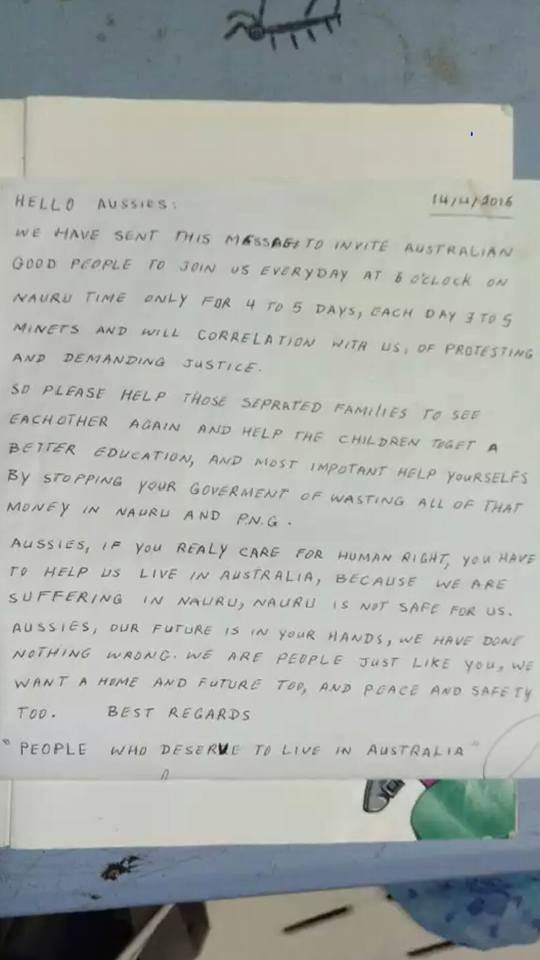 HELLO AUSSIES:
14/4/2016
WE HAVE SENT THIS MESSAGE TO INVITE AUSTRALIAN
GOOD PEOPLE TO JOIN US EVERYDAY AT 6 O'CLOCK ON
NAURU TIME ONLY FOR 4 TO 5 DAYS, EACH DAY 3 TO 5
MINETS AND WILL CORRELATION WITH US, OF PROTESTING
AND DEMANDING JUSTICE.
SO PLEASE HELP THOSE SEPRATED FAMILIES TO SEE
EACHOTHER AGAIN AND HELP THE CHILDREN TOGET A
BETTER EDUCATION, AND MOST IMPOTANT HELP YOURSELFS
BY STOPPING YOUR GOVERMENT OF WASTING ALL OF THAT
MONEY IN NAURU AND P.N.G.
AUSSIES, IF YOU REALY CARE FOR HUMAN RIGHT, YOU HAVE
TO HELP US LIVE IN AUSTRALIA, BECAUSE WE ARE
SUFFERING IN NAURU, NAURU IS NOT SAFE FOR US.
AUSSIES, OUR FUTURE IS IN YOUR HANDS, WE HAVE DONE
NOTHING WRONG. WE ARE PEOPLE JUST LIKE YOU, WE
WANT A HOME AND FUTURE TOO, AND PEACE AND SAFETY
TOO. BEST REGARDS
"PEOPLE WHO DESERVE TO LIVE IN AUSTRALIA"